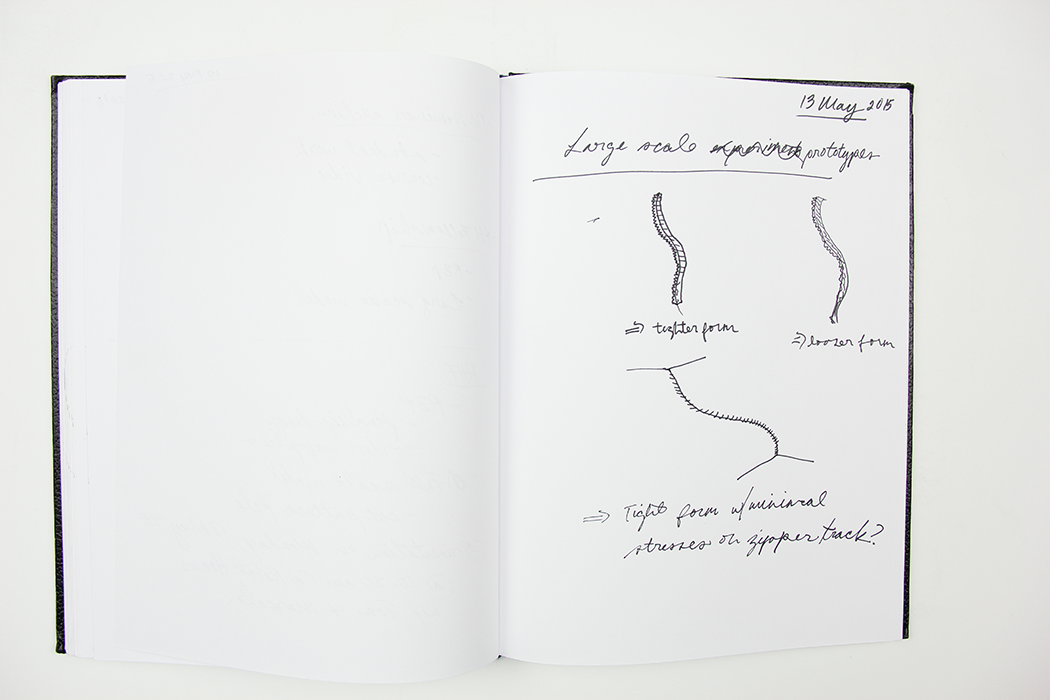 13 May 2015
Large scale experiments prototypes
⇒ tighter form
⇒ looser form
⇒ Tight form w/minimal
stresses on zipper track?